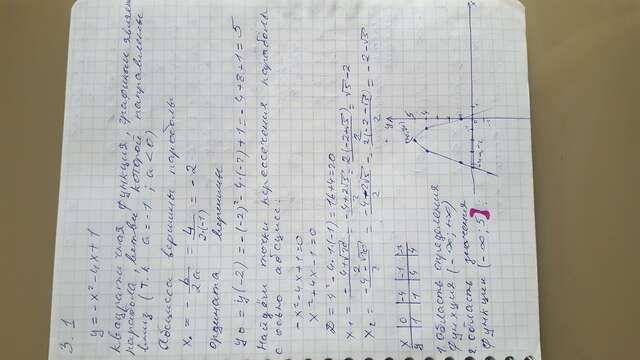 3.1
y = -x² - 4x + 1
Квадратичная функция, графиком является
парабола, ветви которой направлены
вниз (т.к a = -1; a < 0)
Абсцисса вершины параболы
x₀ = -b/2a = 4/2·(-1) = -2
Ордината вершины
y₀ = y(-2) = -(-2)² - 4·(-2) + 1 = -4 + 8 + 1 = 5
Найдём точки пересечения параболы
с осью абсцисс:
-x² - 4x + 1 = 0
x² + 4x - 1 = 0
D = 4² - 4·1·(-1) = 16 + 4 = 20
x₁ = -4+√20/2 = -4+2√5/2 = 2(-2+√5)/2 = √5 - 2
x₂ = -4-√20/2 = -4-2√5/2 = 2(-2-√5)/2 = -2-√5
x | 0 | -4 | -1 | -3
y | 1 | 1 | 4 | 4
1 область определения
функция (-∞; +∞)
2 область значения
функции (-∞; 5]
y
5
4